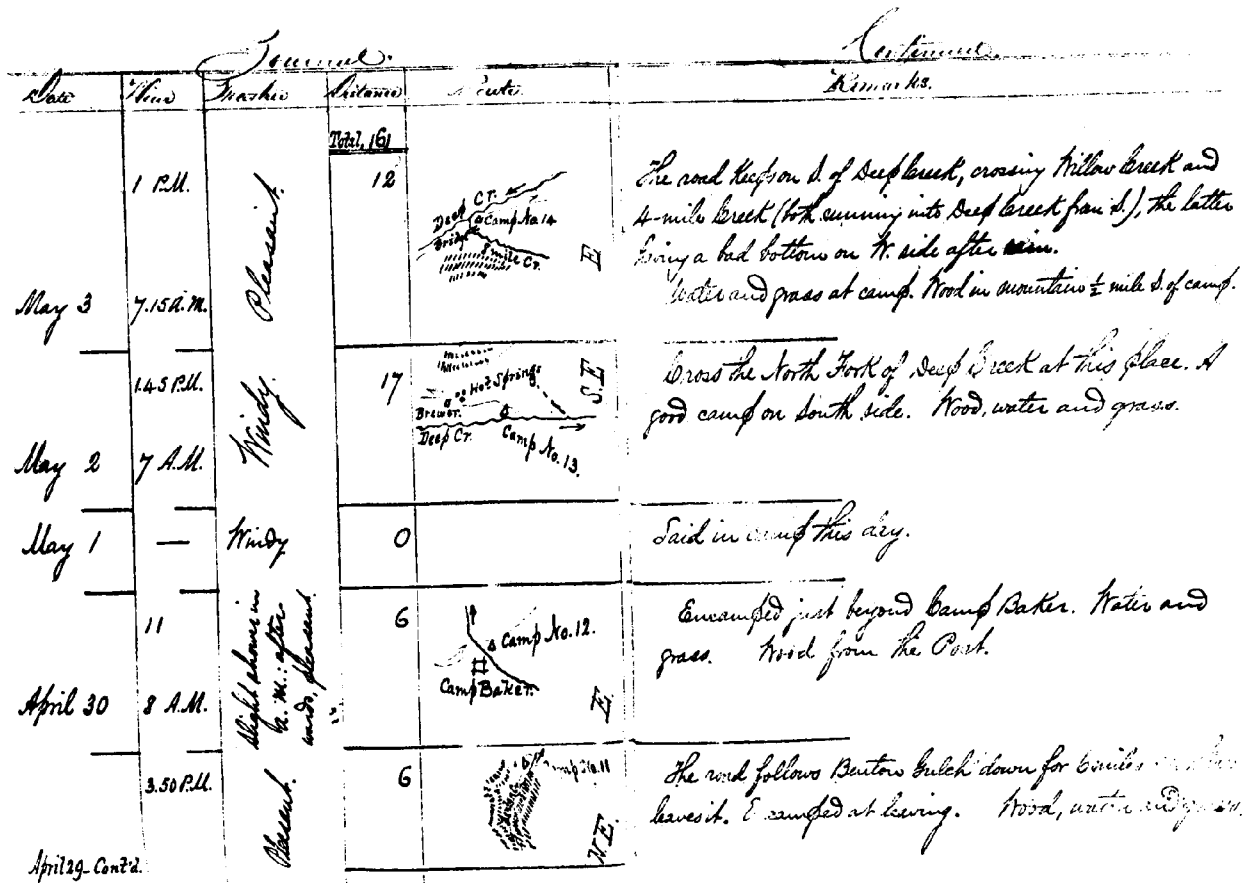 Journal.
Continued.
Date Hour Weather Distance Route Remarks.
Total, 161
1 P.M. 12
Pleasant.
Deep Cr.
Camp No. 14
Bridge
mile Cr.
E
The road keeps on S. of Deep Creek, crossing Willow Creek and
4-mile Creek (both running into Deep Creek from S.), the latter
having a bad bottom on W. side after rain.
Water and grass at camp. Wood in mountain ½ mile S. of camp.
May 3 7.15 A.M.
1.45 P.M. 17
Windy.
Hot Springs
Brewer.
Deep Cr. Camp No. 13.
S.E
Cross the North Fork of Deep Creek at this place. A
good camp on South side. Wood, water and grass.
May 2 7 A.M.
May 1 — Windy 0
Laid in camp this day.
11 6
Slight showers in
a.m.: after
wards, pleasant
Camp No. 12.
Camp Baker.
E.
Encamped just beyond Camp Baker. Water and
grass. Wood from the Post.
April 30 8 A.M.
3.50 P.M. 6
Pleasant.
Camp No. 11
N.E.
The road follows Benton Gulch down for 6 miles
leaves it. Encamped at leaving. Wood, water and grass.
April 29 - Cont'd.